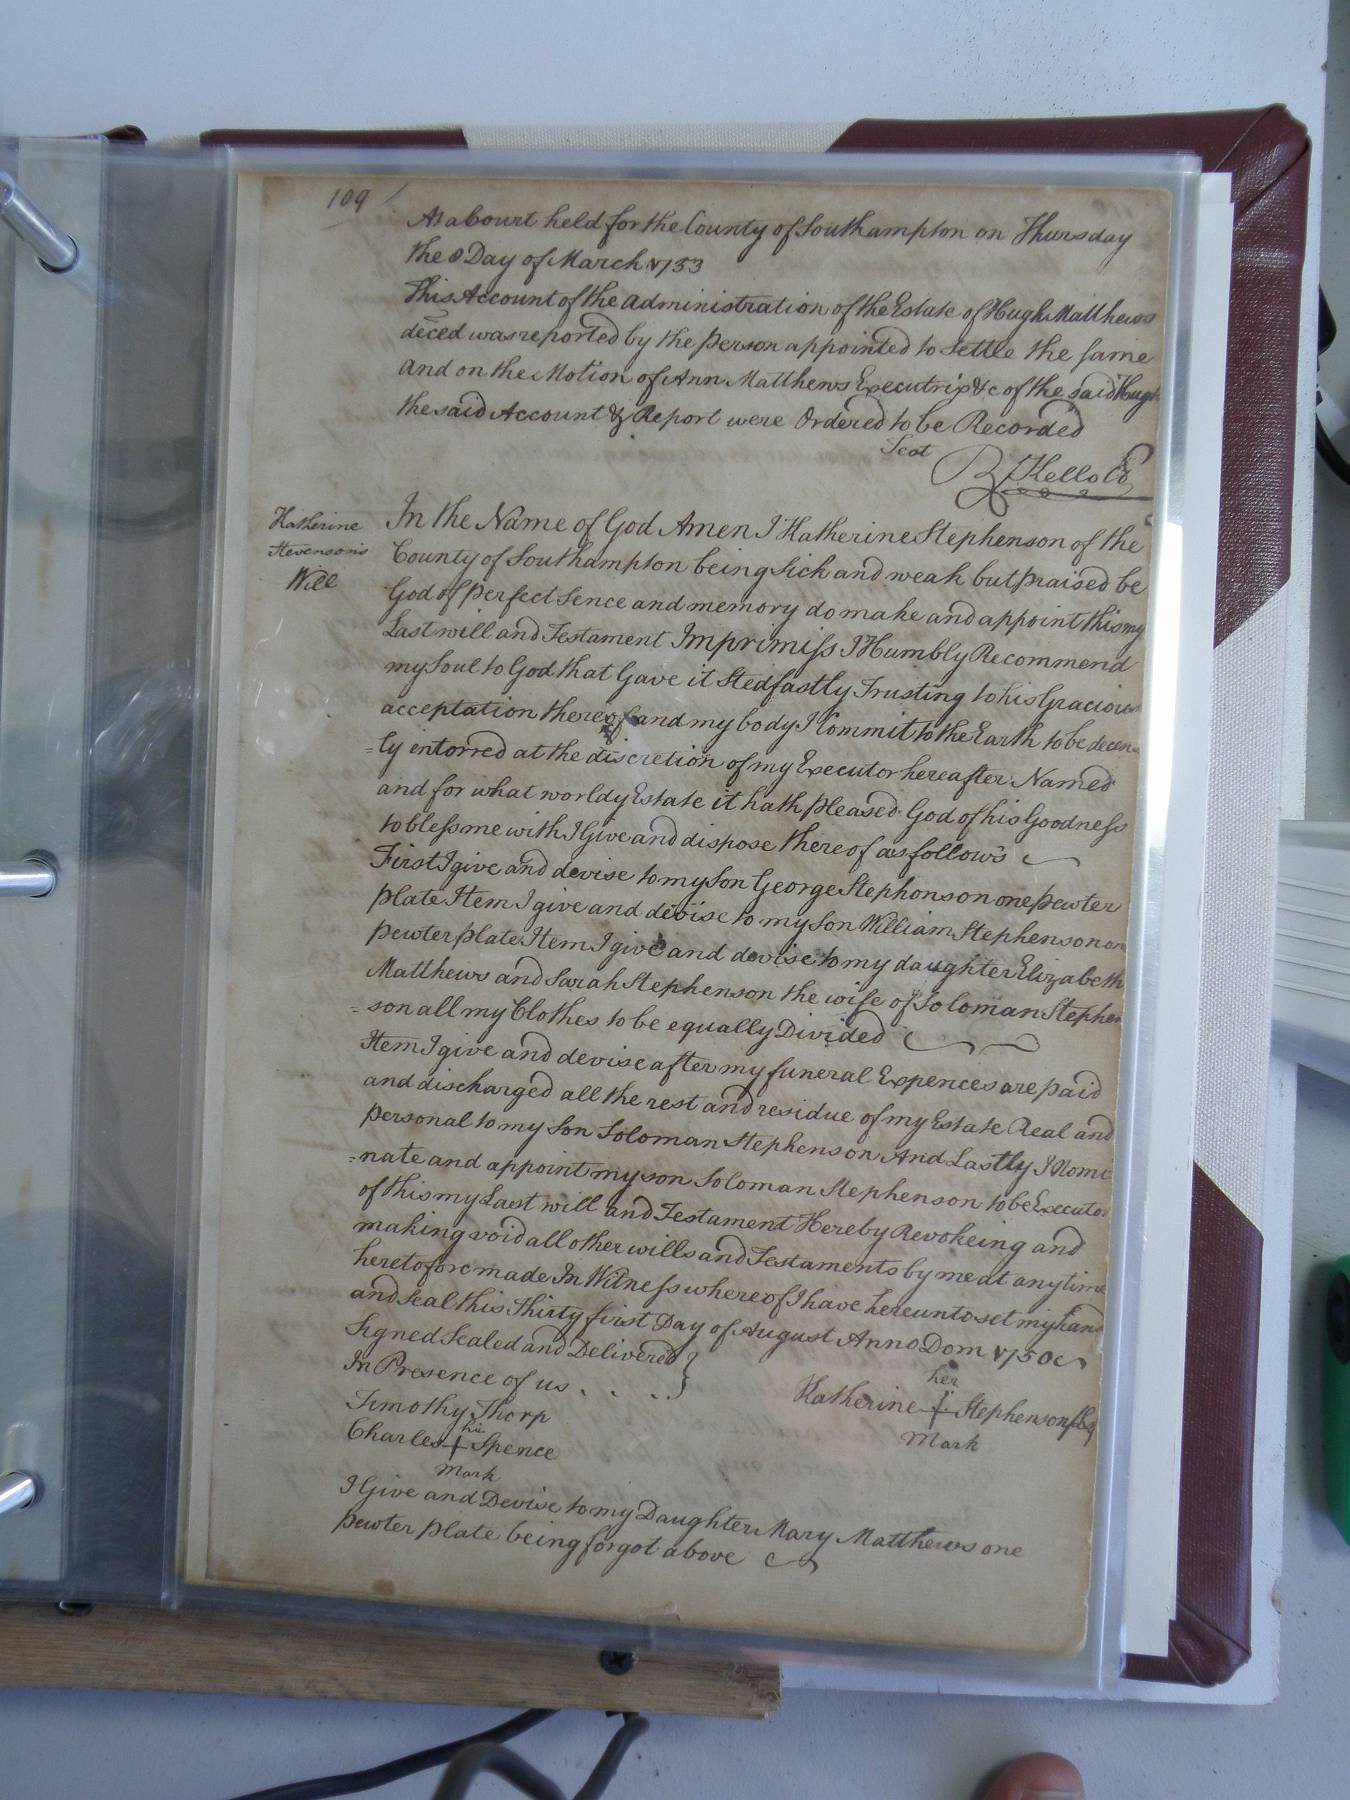 109
At a Court held for the County of Southampton on Thursday
the 8 Day of March 1753
This Account of the administration of the Estate of Hugh Matthews
deced was reported by the person appointed to settle the same
and on the Motion of Ann Matthews Executrix &c of the said Hugh
the said Account & Report were Ordered to be Recorded
Test
Katherine
Stevenson's
Will
In the Name of God Amen I Katherine Stephenson of the
County of Southampton being Sick and weak but praised be
God of perfect Sence and memory do make and appoint this my
Last will and Testament Imprimiss I Humbly Recommend
my Soul to God that Gave it Stedfastly Trusting to his Gracious
acceptation thereof and my body I Commit to the Earth to be decen
=ly entorred at the discretion of my Executor hereafter Named
and for what worldy Estate it hath pleased God of his Goodness
to bless me with I Give and dispose thereof as follows
First I give and devise to my Son George Stephonson one pewter
plate Item I give and devise to my Son William Stephenson on
pewter plate Item I give and devise to my daughter Elizabeth
Matthews and Sarah Stephenson the wife of Soloman Stephen
=son all my Clothes to be equally Divided
Item I give and devise after my funeral Expences are paid
and discharged all the rest and residue of my Estate Real and
personal to my Son Soloman Stephenson And Lastly I Nomi
=nate and appoint my son Soloman Stephenson to be Executor
of this my Last will and Testament Hereby Revokeing and
making void all other wills and Testaments by me at any time
heretofore made In Witness whereof I have hereunto set my hand
and Seal this Thirty first Day of August Anno Dom 1750
Signed Sealed and Delivered }
In Presence of us . . ..
her
Katherine + Stephenson
Mark
Timothy Thorp
his
Charles + Spence
Mark
I Give and Devise to my Daughter Mary Matthews one
pewter plate being forgot above